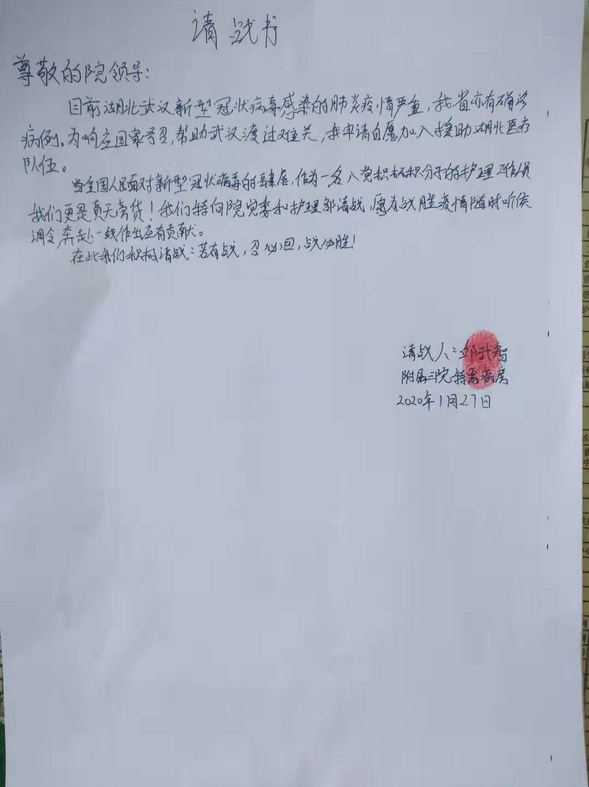 请战书
尊敬的院领导：
目前湖北武汉新型冠状病毒感染的肺炎疫情严重，我省亦有确诊
病例。为响应国家号召，帮助武汉渡过难关，我申请自愿加入援助湖北医疗
队伍。
当全国人民面对新型冠状病毒的肆虐，作为一名入党积极分子的护理工作人员
我们更是责无旁贷！我们特向院党委和护理部请战，愿为战胜疫情随时听候
调令，奔赴一线作出应有贡献。
在此我们积极请战：若有战，召必回，战必胜！
请战人：
附属三院特需病房
2020年1月27日